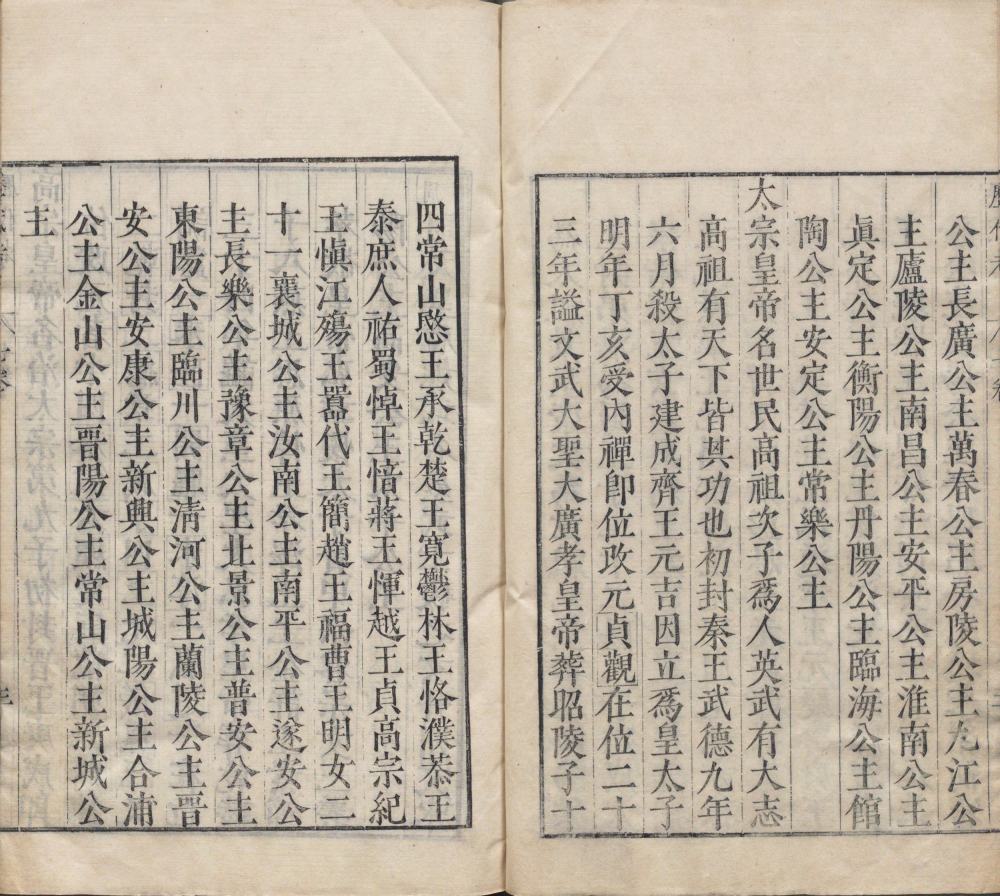 公主長廣公主萬春公主房陵公主九江公
主廬陵公主南昌公主安平公主淮南公主
眞定公主衡陽公主丹陽公主臨海公主館
陶公主安定公主常樂公主
太宗皇帝名世民高祖次子爲人英武有大志
高祖有天下皆其功也初封秦王武德九年
六月殺太子建成齊王元吉因立爲皇太子
明年丁亥受內禪卽位改元貞觀在位二十
三年謚文武大聖大廣孝皇帝葬昭陵子十
四常山愍王承乾楚王寬鬱林王恪濮恭王
泰庶人祐蜀悼王愔蔣王惲越王貞高宗紀
王愼江殤王囂代王簡趙王福曹王明女二
十一襄城公主汝南公主南平公主遂安公
主長樂公主豫章公主北景公主普安公主
東陽公主臨川公主淸河公主蘭陵公主晉
安公主安康公主新興公主城陽公主合浦
公主金山公主晉陽公主常山公主新城公
主